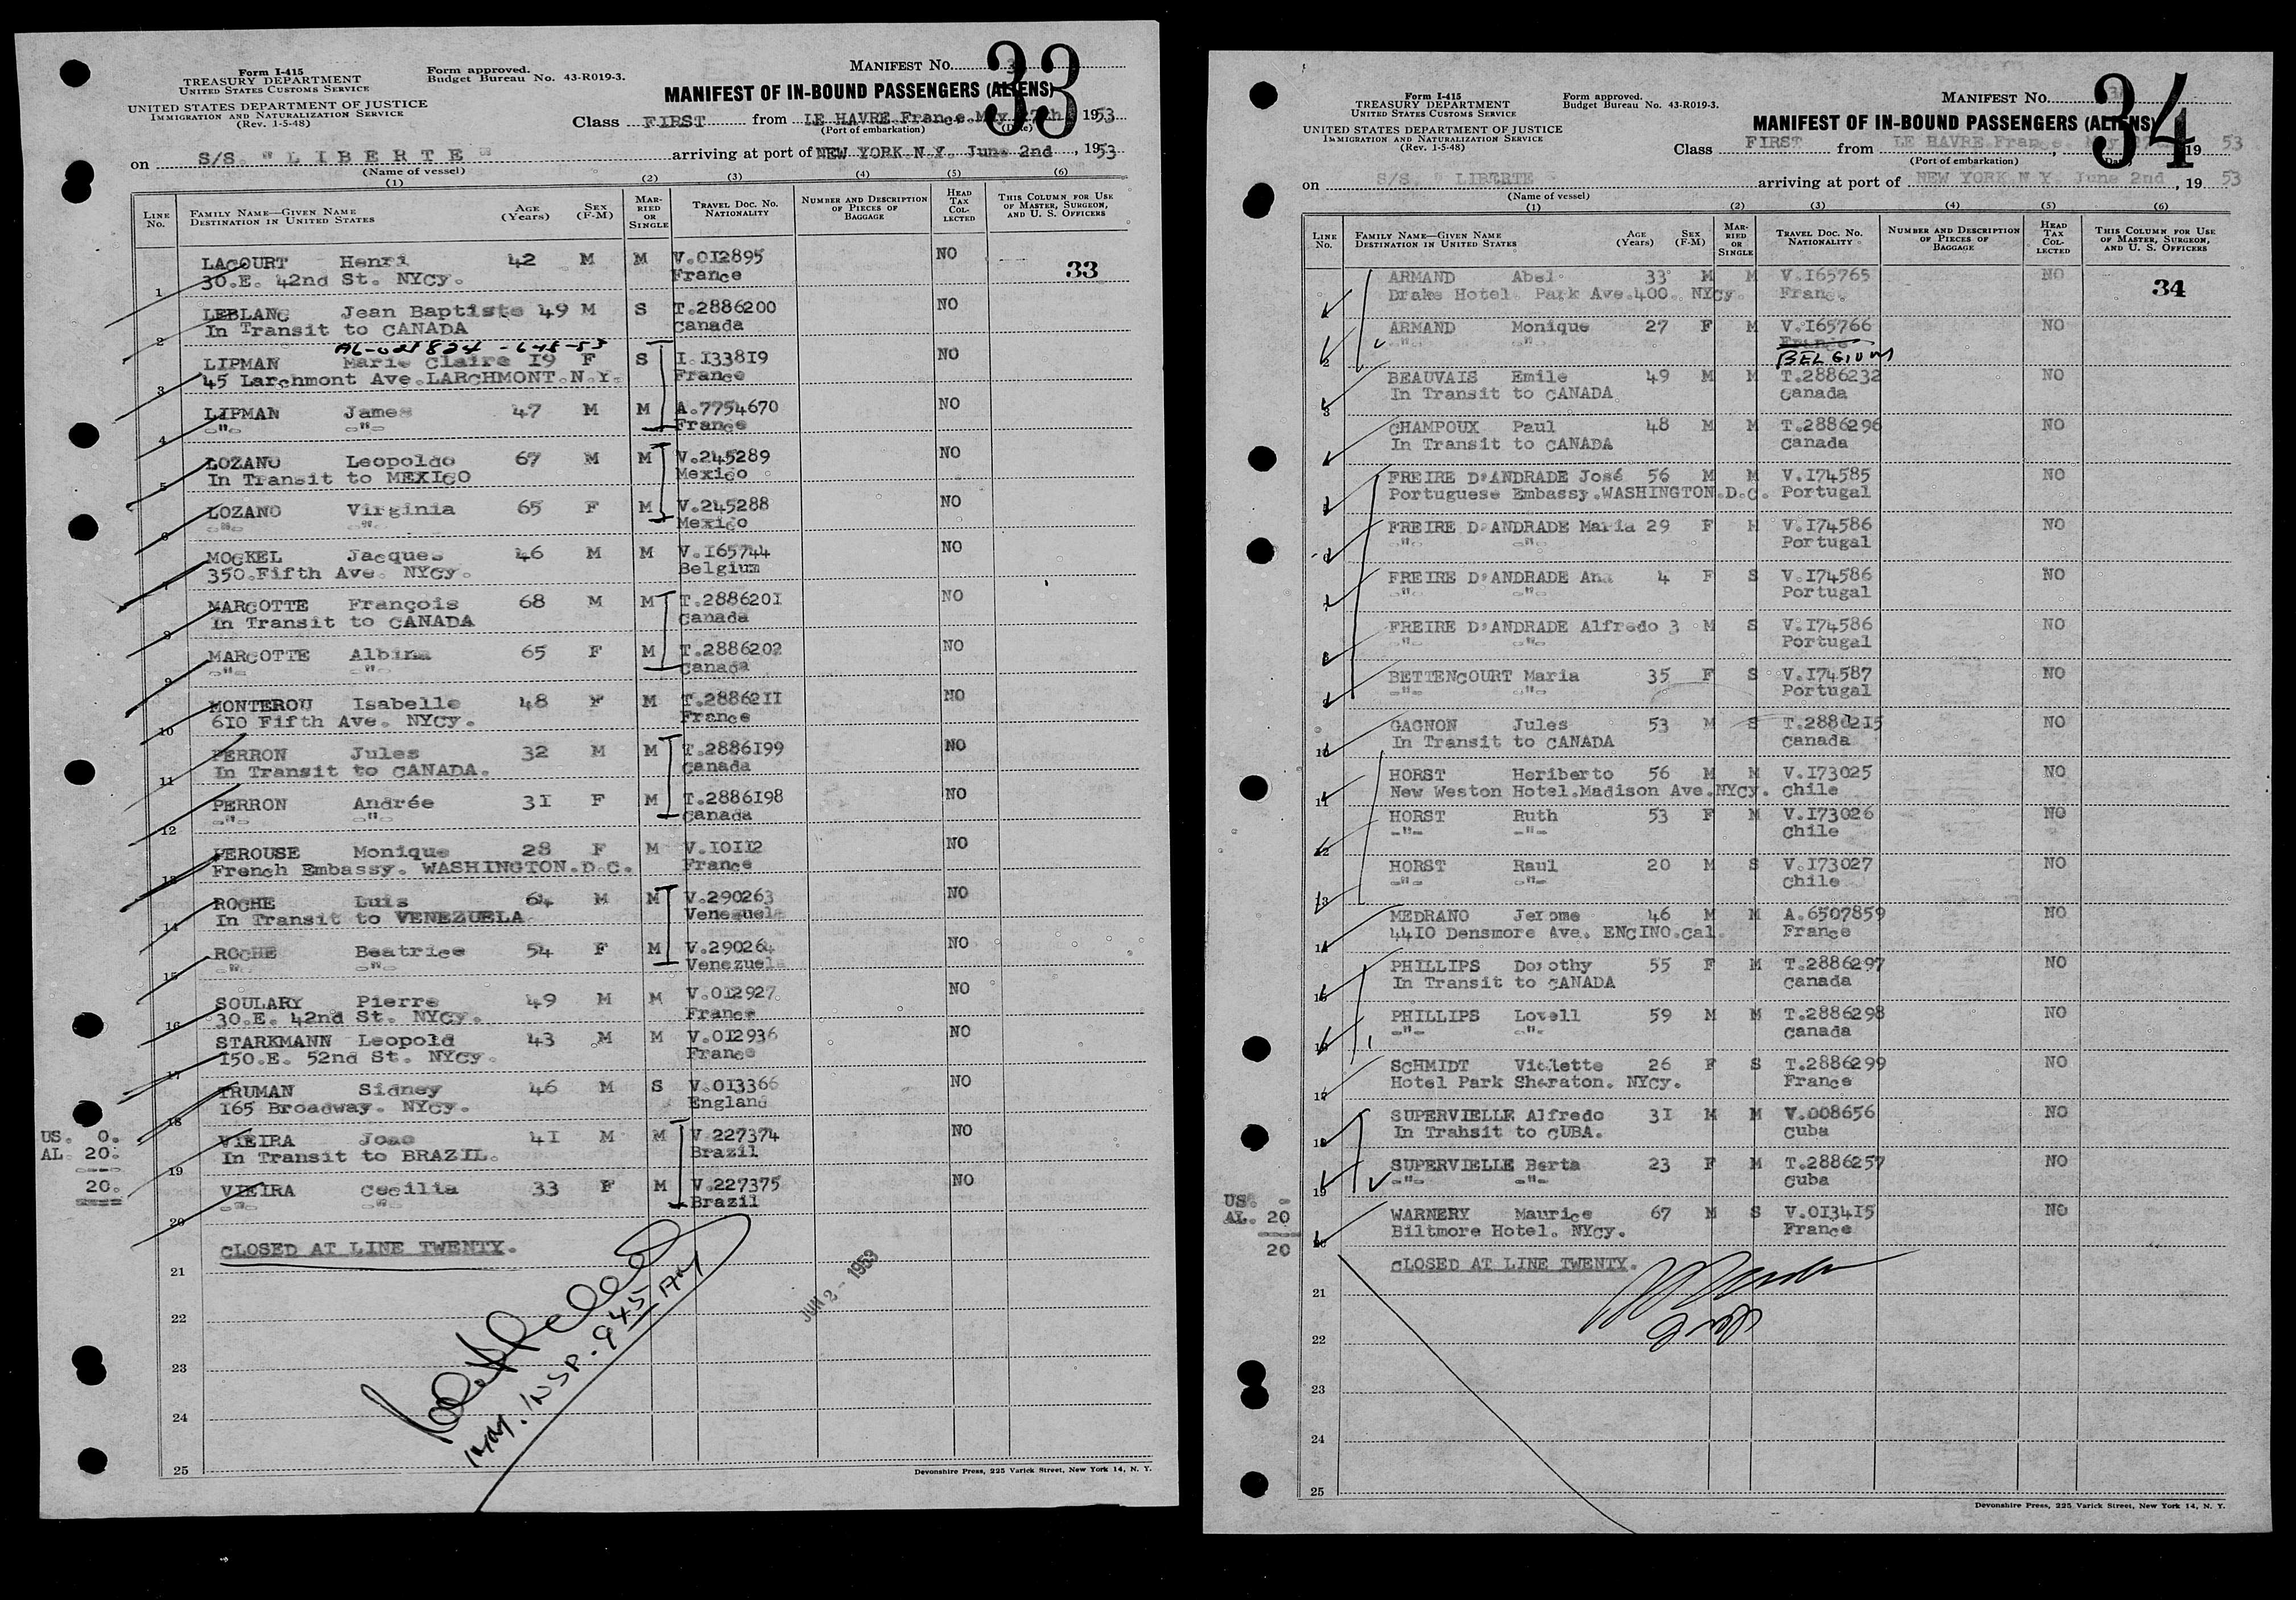 Form I-415
TREASURY DEPARTMENT
UNITED STATES CUSTOMS SERVICE
UNITED STATES DEPARTMENT OF JUSTICE
IMMIGRATION AND NATURALIZATION SERVICE
(Rev. 1-5-48)
Form approved.
Budget Bureau No. 43-R019-3.
MANIFEST NO.
33
MANIFEST OF IN-BOUND PASSENGERS (ALIENS)
Class FIRST from LE HAVRE.France.May 27th 1953
(Port of embarkation) (Date)
on S/S. "LIBERTE" arriving at port of NEW YORK.N.Y. June 2nd, 1953
(Name of vessel)
(1) (2) (3) (4) (5) (6)
LINE No. FAMILY NAME—GIVEN NAME DESTINATION IN UNITED STATES AGE (Years) SEX (F-M) MARRIED OR SINGLE TRAVEL DOC. NO. NATIONALITY NUMBER AND DESCRIPTION OF PIECES OF BAGGAGE HEAD TAX COLLECTED THIS COLUMN FOR USE OF MASTER, SURGEON, AND U. S. OFFICERS
33
1 LACOURT Henri 42 M M V.012895 NO
30.E. 42nd St. NYCy. France
2 LEBLANC Jean Baptiste 49 M S T.2886200 NO
In Transit to CANADA Canada
3 LIPMAN Marie Claire 19 F S I.133819 NO
45 Larchmont Ave.LARCHMONT.N.Y. France
4 LIPMAN James 47 M M A.7754670 NO
-"- -"- France
5 LOZANO Leopoldo 67 M M V.245289 NO
In Transit to MEXICO Mexico
6 LOZANO Virginia 65 F M V.245288 NO
-"- -"- Mexico
7 MOCKEL Jacques 46 M M V.165744 NO
350.Fifth Ave. NYCy. Belgium
8 MARCOTTE François 68 M M T.2886201 NO
In Transit to CANADA Canada
9 MARCOTTE Albina 65 F M T.2886202 NO
-"- -"- Canada
10 MONTEROU Isabelle 48 F M T.2886211 NO
610 Fifth Ave. NYCy. France
11 PERRON Jules 32 M M T.2886199 NO
In Transit to CANADA. Canada
12 PERRON Andrée 31 F M T.2886198 NO
-"- -"- Canada
13 PEROUSE Monique 28 F M V.10112 NO
French Embassy. WASHINGTON.D.C. France
14 ROCHE Luis 64 M M V.290263 NO
In Transit to VENEZUELA Venezuela
15 ROCHE Beatrice 54 F M V.290264 NO
-"- -"- Venezuela
16 SOULARY Pierre 49 M M V.012927 NO
30.E. 42nd St. NYCy. France
17 STARKMANN Leopold 43 M M V.012936 NO
150.E. 52nd St. NYCy. France
18 TRUMAN Sidney 46 M S V.013366 NO
165 Broadway. NYCy. England
19 VIEIRA Joao 41 M M V.227374 NO
In Transit to BRAZIL. Brazil
20 VIEIRA Cecilia 33 F M V.227375 NO
-"- -"- Brazil
US. 0.
AL. 20.
20.
CLOSED AT LINE TWENTY.
21
22
23
24
25
JUN 2 - 1953
IMM. INSP. - 9 45 AM
Devonshire Press, 225 Varick Street, New York 14, N. Y.
Form I-415
TREASURY DEPARTMENT
UNITED STATES CUSTOMS SERVICE
UNITED STATES DEPARTMENT OF JUSTICE
IMMIGRATION AND NATURALIZATION SERVICE
(Rev. 1-5-48)
Form approved.
Budget Bureau No. 43-R019-3.
MANIFEST NO.
34
MANIFEST OF IN-BOUND PASSENGERS (ALIENS)
Class FIRST from LE HAVRE.France. May 27 1953
(Port of embarkation) (Date)
on S/S. "LIBERTE arriving at port of NEW YORK.N.Y. June 2nd, 1953
(Name of vessel)
(1) (2) (3) (4) (5) (6)
LINE No. FAMILY NAME—GIVEN NAME DESTINATION IN UNITED STATES AGE (Years) SEX (F-M) MARRIED OR SINGLE TRAVEL DOC. NO. NATIONALITY NUMBER AND DESCRIPTION OF PIECES OF BAGGAGE HEAD TAX COLLECTED THIS COLUMN FOR USE OF MASTER, SURGEON, AND U. S. OFFICERS
34
1 ARMAND Abel 33 M M V.165765 NO
Drake Hotel. Park Ave.400. NYCy. France
2 ARMAND Monique 27 F M V.165766 NO
-"- -"- France
BELGIUM
3 BEAUVAIS Emile 49 M M T.2886232 NO
In Transit to CANADA Canada
4 CHAMPOUX Paul 48 M M T.2886296 NO
In Transit to CANADA Canada
5 FREIRE D'ANDRADE José 56 M M V.174585 NO
Portuguese Embassy.WASHINGTON.D.C. Portugal
6 FREIRE D'ANDRADE Maria 29 F M V.174586 NO
-"- -"- Portugal
7 FREIRE D'ANDRADE Ana 4 F S V.174586 NO
-"- -"- Portugal
8 FREIRE D'ANDRADE Alfredo 3 M S V.174586 NO
-"- -"- Portugal
9 BETTENCOURT Maria 35 F S V.174587 NO
-"- -"- Portugal
10 GAGNON Jules 53 M S T.2886215 NO
In Transit to CANADA Canada
11 HORST Heriberto 56 M M V.173025 NO
New Weston Hotel.Madison Ave.NYCy. Chile
12 HORST Ruth 53 F M V.173026 NO
-"- -"- Chile
13 HORST Raul 20 M S V.173027 NO
-"- -"- Chile
14 MEDRANO Jerome 46 M M A.6507859 NO
4410 Densmore Ave. ENCINO.Cal. France
15 PHILLIPS Dorothy 55 F M T.2886297 NO
In Transit to CANADA Canada
16 PHILLIPS Lovell 59 M M T.2886298 NO
-"- -"- Canada
17 SCHMIDT Violette 26 F S T.2886299 NO
Hotel Park Sheraton. NYCy. France
18 SUPERVIELLE Alfredo 31 M M V.008656 NO
In Trahsit to CUBA. Cuba
19 SUPERVIELLE Berta 23 F M T.2886257 NO
-"- -"- Cuba
20 WARNERY Maurice 67 M S V.013415 NO
Biltmore Hotel. NYCy. France
US. -
AL. 20
20
CLOSED AT LINE TWENTY.
21
22
23
24
25
Devonshire Press, 225 Varick Street, New York 14, N. Y.